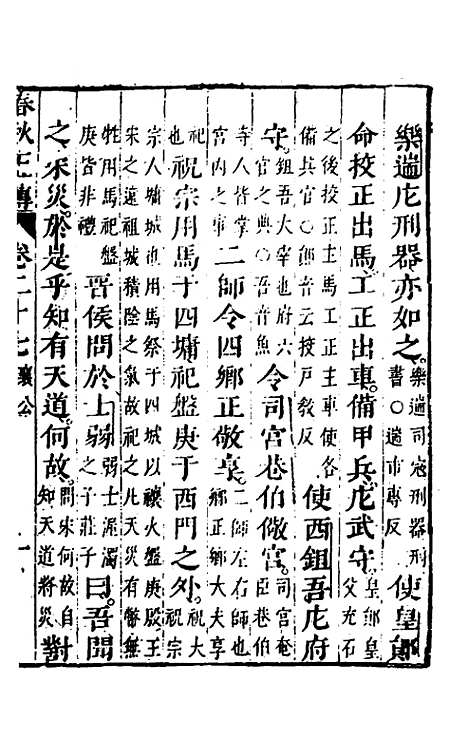 樂遄庀刑器亦如之樂遄司寇刑器刑書○遄市專反使皇鄖
命校正出馬工正出車備甲兵庀武守皇鄖皇父充石
之後校正主馬工正主車使各備兵官○鄖音云校戶教反使西鉏吾庀府
守鉏吾大宰也府六官之典○吾音魚令司宮巷伯儆宮司宮奄臣巷伯
寺人皆掌宮內之事二師令四鄉正敬享二師左右師也鄉正鄉大夫享
祀也祝宗用馬于四墉祀盤庚于西門之外祝大祝宗
宗人墉城也用馬祭于四城以禳火盤庚殷王宋之遠祖城積陰之氣故祀之凡天災有幣無
牲用馬祀盤庚皆非禮晉侯問於士弱弱士渥濁之子莊子曰吾聞
之宋災於是乎知有天道何故問宋何故自知天道將災對
春秋左傳 卷二十七 襄公 一